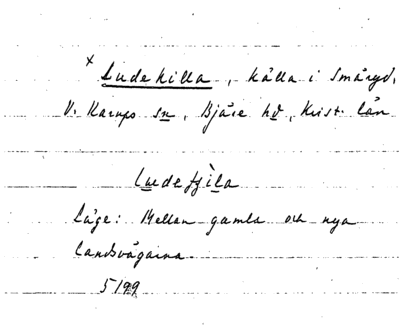 × Ludekilla, källa i Småryd,
V. Karups sn, Bjäre hd, Krist. län
Ludetjìla
Läge: Mellan gamla och nya
landsvägarna.
5199